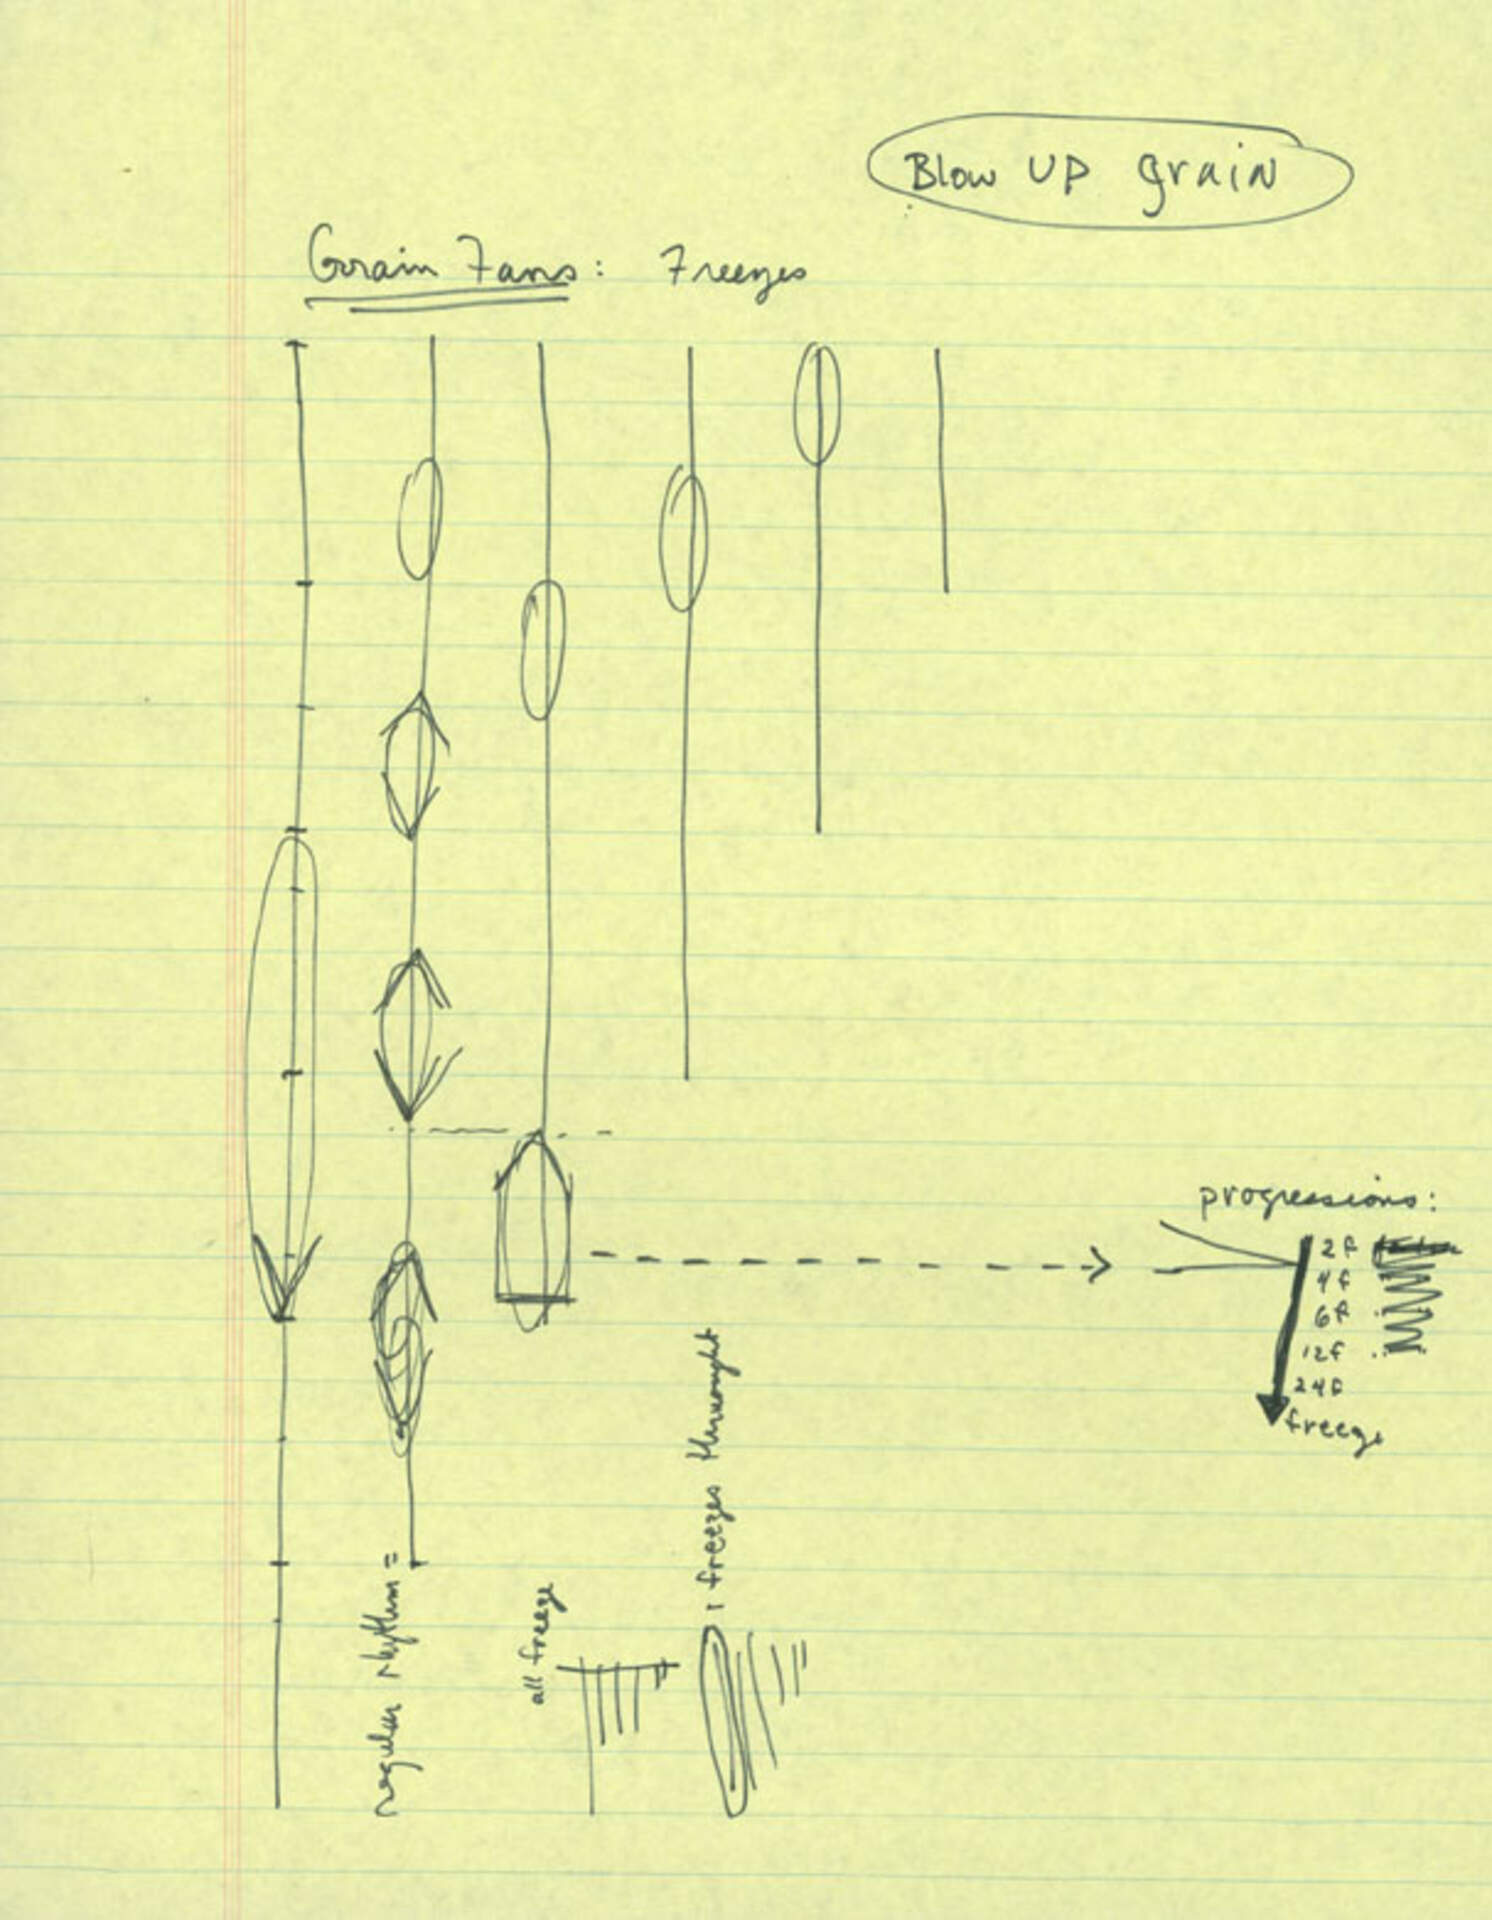 Blow UP grain
Grain Fans: Freezes
progressions:
2f
4f
6f
12f
24f
freeze
regular rhythm =
all freeze
1 freezes throught